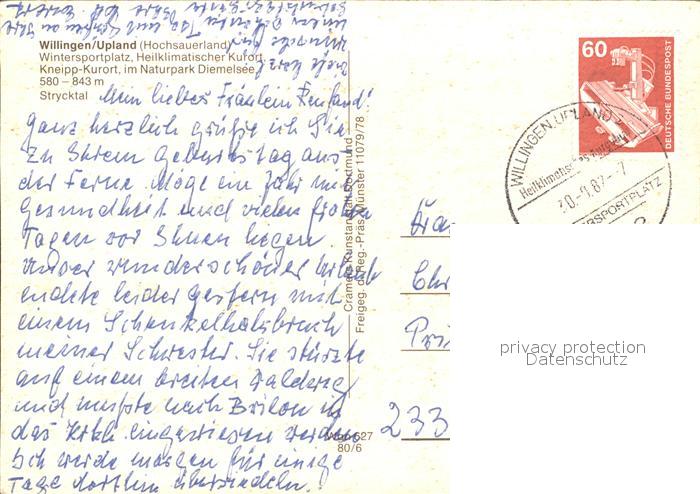 Willingen/Upland (Hochsauerland)
Wintersportplatz, Heilklimatischer Kurort,
Kneipp-Kurort, im Naturpark Diemelsee
580 – 843 m
Strycktal
Mein liebes Fräulein
Ganz herzlich grüße ich Sie
zu Ihrem Geburtstag aus
der Ferne. Möge ein Jahr mit
Gesundheit und vielen frohen
Tagen vor Ihnen liegen.
Unser wunderschöner Urlaub
endete leider gestern mit
einem Schenkelhalsbruch
meiner Schwester. Sie stürzte
auf einem breiten Waldweg
und mußte nach Brilon in
das Krkh. eingewiesen werden
Ich werde morgen für einige
Tage dorthin übersiedeln.
Cramers Kunstanstalt Dortmund
Freigeg. d. Reg.-Präs. Münster 11079/78
527
80/6
60
DEUTSCHE BUNDESPOST
WILLINGEN, UPLAND
Heilklimatischer
Chr
233
privacy protection
Datenschutz